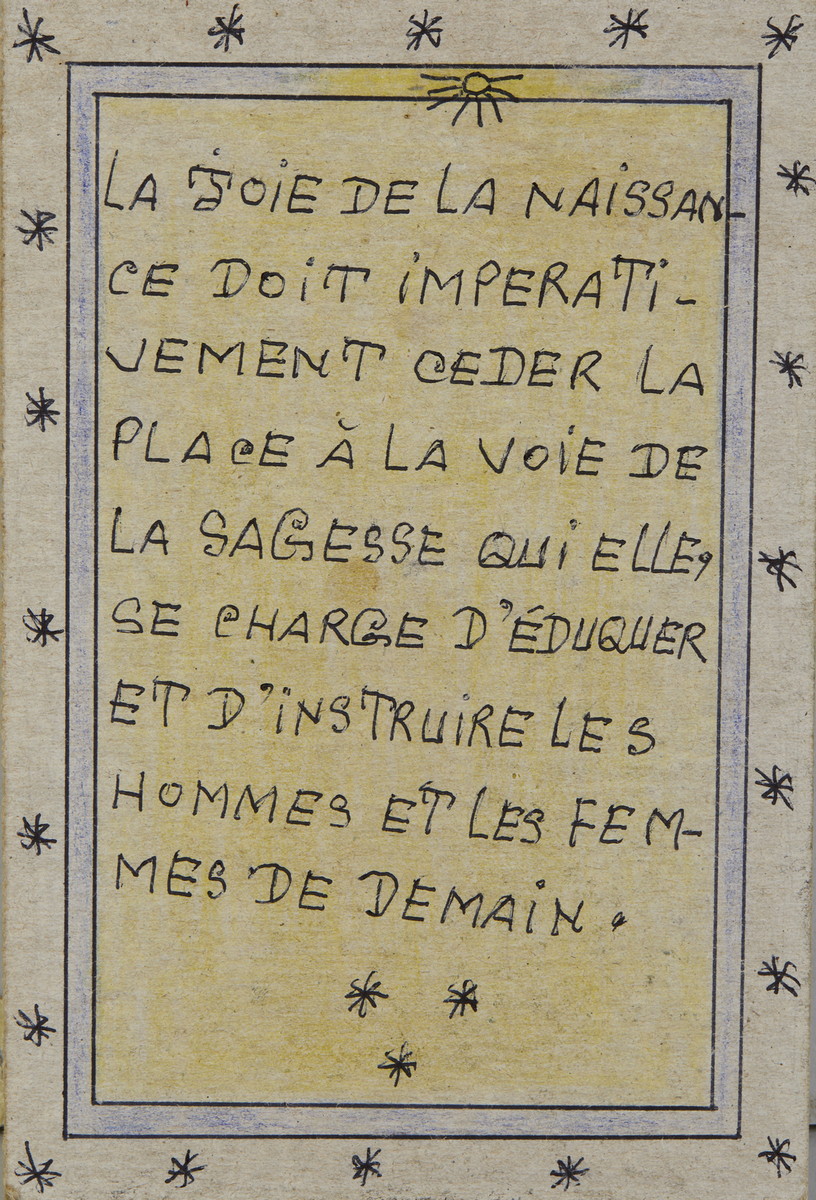 LA JOIE DE LA NAISSAN-
CE DOIT IMPERATI-
VEMENT CEDER LA
PLACE À LA VOIE DE
LA SAGESSE QUI ELLE,
SE CHARGE D'ÉDUQUER
ET D'INSTRUIRE LES
HOMMES ET LES FEM-
MES DE DEMAIN.